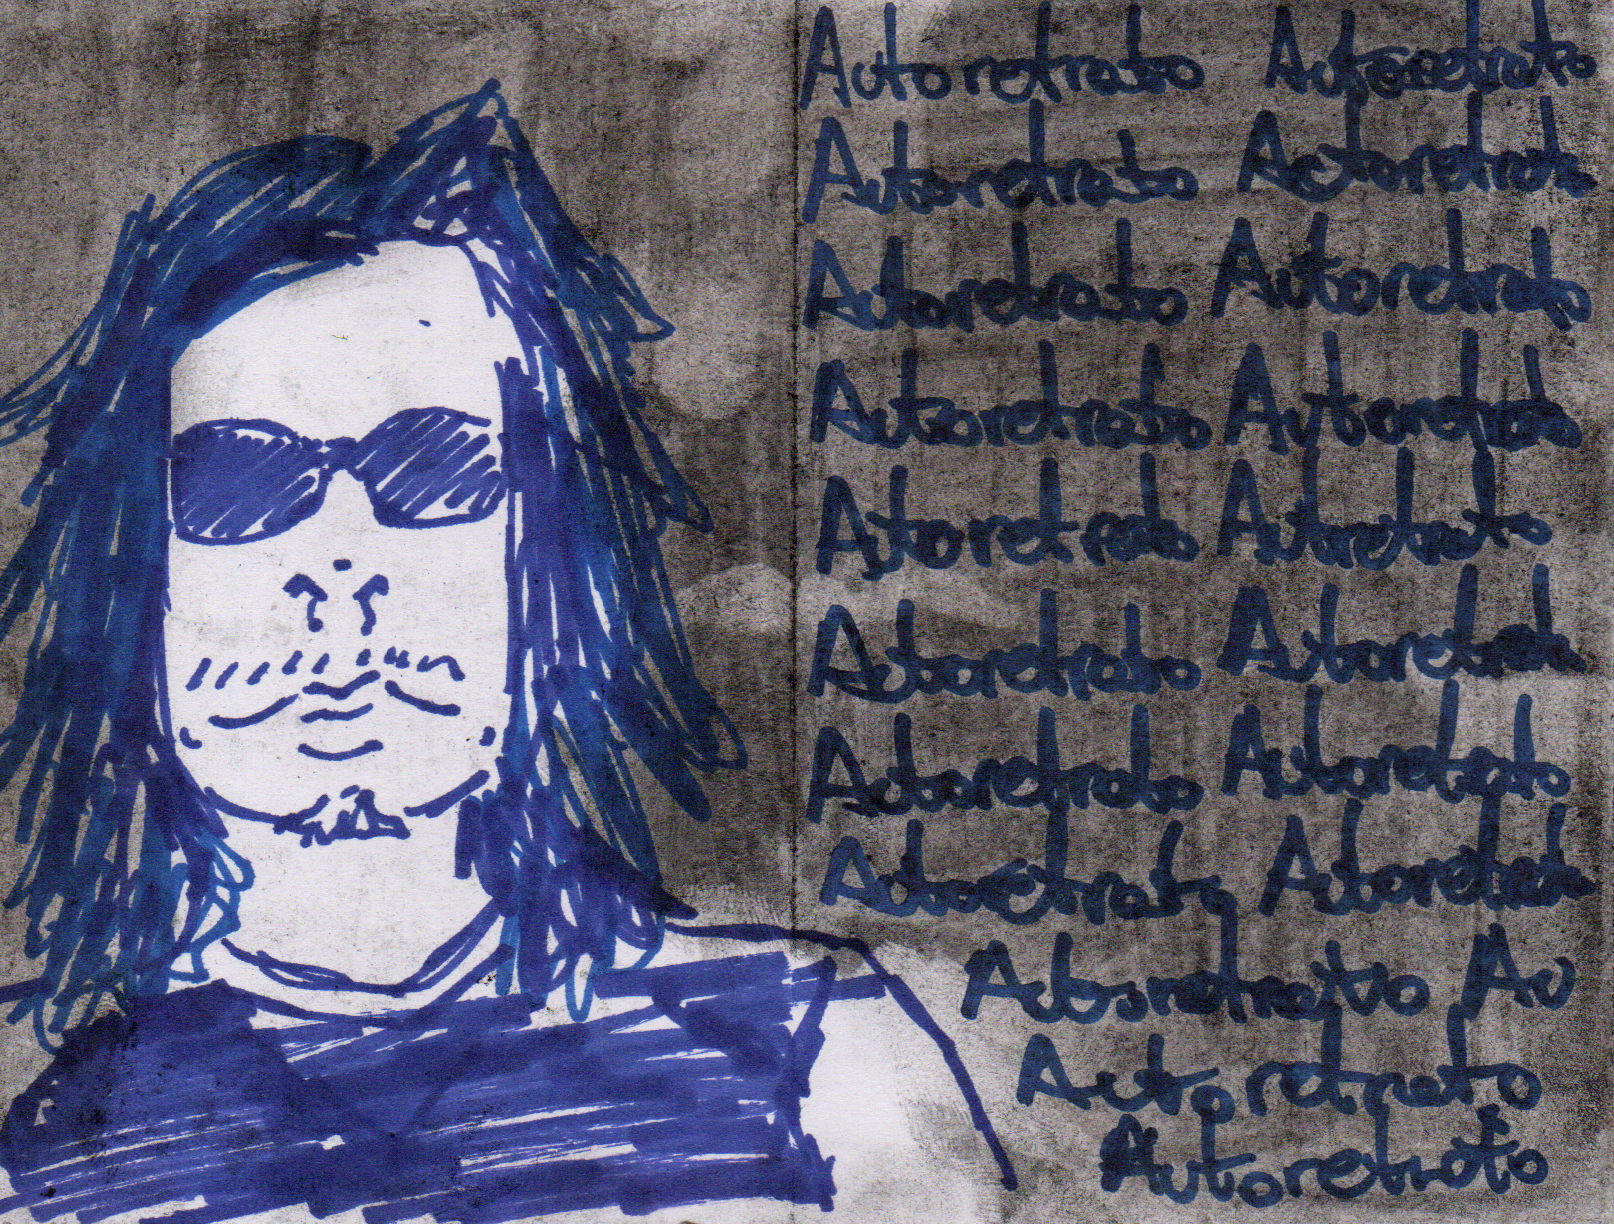 Autoretrato Autoretrato
Autoretrato Autoretrato
Autoretrato Autoretrato
Autoretrato Autoretrato
Autoretrato Autoretrato
Autoretrato Autoretrato
Autoretrato Autoretrato
Autoretrato Autoretrato
Autoretrato Au
Autoretrato
Autoretrato